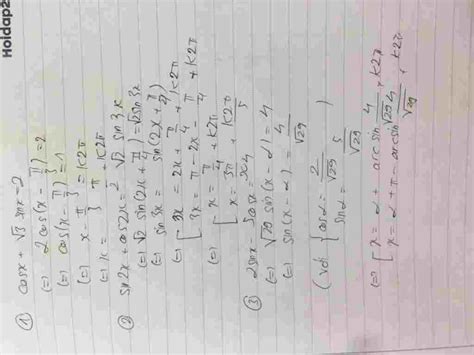 Hoidap2
① cosx + √3 sinx = 2
(=) 2cos(x - π/3) = 2
(=) cos(x - π/3) = 1
(=) x - π/3 = k2π
(=) x = π/3 + k2π
② sin2x + cos2x = √2 sin3x
(=) √2 sin(2x + π/4) = √2 sin3x
(=) sin3x = sin(2x + π/4)
(=) [ 3x = 2x + π/4 + k2π
3x = π - 2x - π/4 + k2π
(=) [ x = π/4 + k2π
x = 3π + k2π
③ 2sinx - 5cosx = 4
(=) √29 sin(x - α) = 4
(=) sin(x - α) = 4/√29
( với { cosα = 2/√29
sinα = 5/√29 )
(=) [ x = α + arcsin 4/√29 + k2π
x = α + π - arcsin 4/√29 + k2π